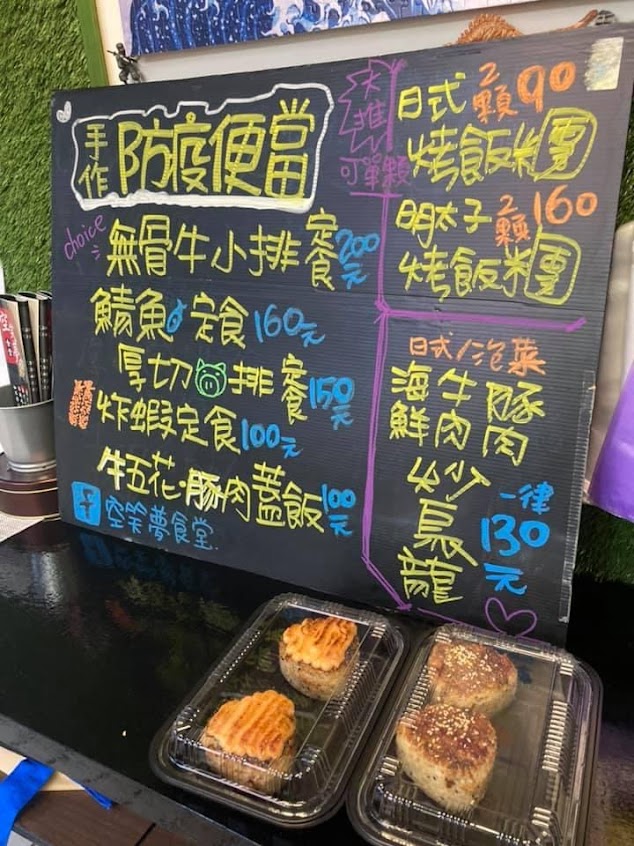 手作 防疫便當
choice
無骨牛小排定食 200元
鯖魚定食 160元
厚切排定食 150元
炸蝦定食 100元
牛五花、豚肉蓋飯 100元
空笑夢食堂
大推
可單顆
日式 2顆 90
烤飯糰
明太子 2顆 160
烤飯糰
日式/泡菜
海鮮 牛肉 豚肉
炒烏龍
一律
130
元